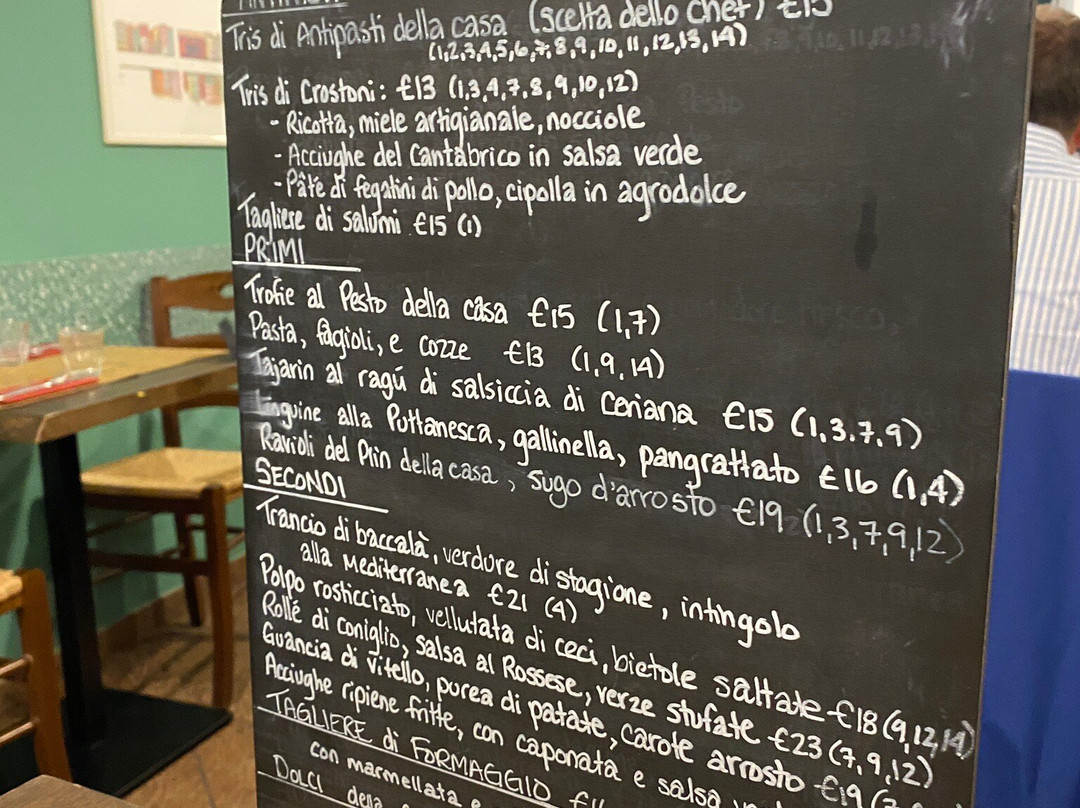 Tris di Antipasti della casa (scelta dello chef) €15
(1,2,3,4,5,6,7,8,9,10,11,12,13,14)
Tris di Crostoni: €13 (1,3,4,7,8,9,10,12)
- Ricotta, miele artigianale, nocciole
- Acciughe del Cantabrico in salsa verde
- Pâté di fegatini di pollo, cipolla in agrodolce
Tagliere di salumi €15 (1)
PRIMI
Trofie al Pesto della casa €15 (1,7)
Pasta, fagioli, e cozze €13 (1,9,14)
Tajarin al ragú di salsiccia di Ceriana €15 (1,3.7.9)
Linguine alla Puttanesca, gallinella, pangrattato €16 (1,4)
Ravioli del Plin della casa, sugo d'arrosto €19 (1,3,7,9,12)
SECONDI
Trancio di baccalà, verdure di stagione, intingolo
alla Mediterranea €21 (4)
Polpo rosticciato, vellutata di ceci, bietole saltate €18 (9,12,14)
Rollé di coniglio, salsa al Rossese, verze stufate €23 (7,9,12)
Guancia di vitello, purea di patate, carote arrosto €19 (7
Acciughe ripiene fritte, con caponata e salsa
TAGLIERE di FORMAGGIO €11
con marmellata e
DOLCI della